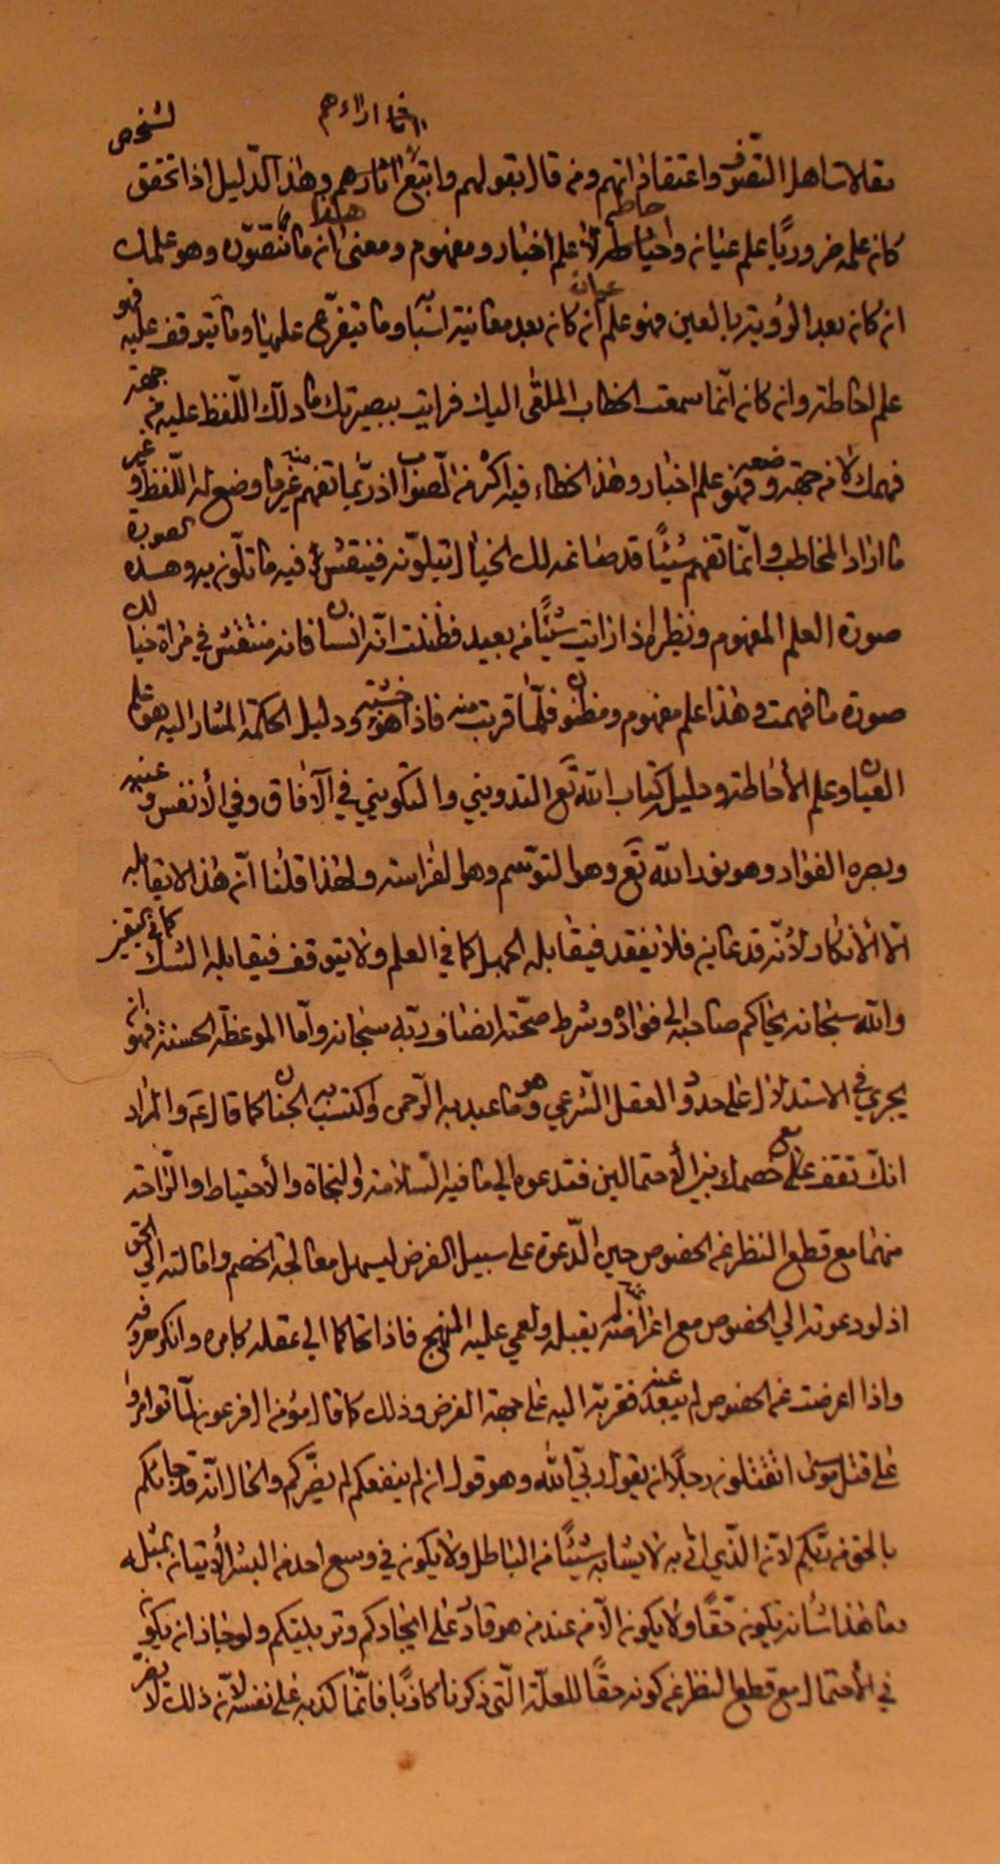 في اراءهم
لشخص
مقالات اهل التصوف واعتقاداتهم ومن قال بقولهم واتبع اثارهم وهذا الدليل اذا تحقق
كان علمه ضروريا علم عيان واحاطة لا علم اخبار ومفهوم ومعنى انه ما تتصوره وهو علمك
ان كان بعد الرؤية بالعين فهو علم عيان كان بعد معاينة اسبابه وما يتفرع عليها وما يتوقف عليه فهو
علم احاطة وان كان انما سمعت الخطاب الملقى اليك فرايت ببصيرتك ما دلك اللفظ عليه من جهة
فهمك لا من جهة وضعه فهو علم اخبار وهذا الخطاء فيه اكثر من الصواب اذ ربما تفهم منه غير ما وضع له اللفظ وغير
ما اراد المخاطب وانما تفهم شيئا قد صاغه لك الخيال بتلونه فينتقش فيه ما تلون به وهذه الصورة
صورة العلم المفهوم ونظيره اذا رايت شيئا من بعيد فظننت انه انسان فانه منتقش في مراة خيالك
صورة ما فهمت وهذا علم مفهوم ومظنون فلما قربت منه فاذا هو خشبة ودليل الحكمة المشار اليه هو علم
العيان وعلم الاحاطة ودليل كتاب الله تع التدويني والتكويني في الآفاق وفي الأنفس وعينه
وبصره الفؤاد وهو نور الله تع وهو التوسم وهو الفراسة ولهذا قلنا ان هذا لا يقابله
الا الأنكار لأنه قد عاينه فلا يفقد فيقابله الجهل كما في العلم ولا يتوقف فيقابله الشك كما في اليقين
والله سبحانه يحاكم صاحبه الى فؤاده وشرط صحته انصاف ربه سبحانه واما الموعظة الحسنة فهو ان
يجري في الاستدلال على حدود العقل الشرعي وهو ما عبد به الرحمن واكتسب به الجنان كما قال ع م والمراد
انك تقف مع خصمك بين الأحتمالين فتدعوه الى ما فيه السلامة والنجاة والأحتياط والراحة
منهما مع قطع النظر عن الخصوص حين الدعوة على سبيل الفرض ليسهل معالجة الخصم وامالته الى الحق
اذ لو دعوته الى الخصوص مع اعراضه عنه لم يقبله ولعمي عليه المنهج فاذا تحاكما الى عقله كابره وانكر معروفه
واذا اعرضت عن الخصوص لم يبعد عنه فقربه اليه على جهة الفرض وذلك كما قال مؤمن ال فرعون لما توامروا
على قتل موسى اتقتلون رجلا ان يقول ربي الله وهو قول ان لم ينفعكم لم يضركم والحال انه قد جائكم
بالحق من ربكم لان الذي اتى به لا يشابه شيئا من الباطل ولا يكون في وسع احد من البشر الأتيان بمثله
وما هذا شانه يكون حقا ولا يكون الا من عند من هو قادر على ايجادكم وتربيتكم ولو جاز ان يكون
في الأحتمال مع قطع النظر عن كونه حقا للعلة التي ذكرنا كاذبا فانما كذبه على نفسه لان ذلك لا يضر